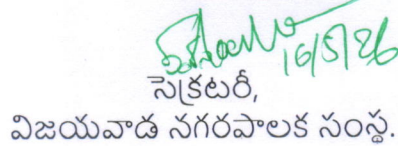 16/5/26
సెక్రటరీ,
విజయవాడ నగరపాలక సంస్థ.